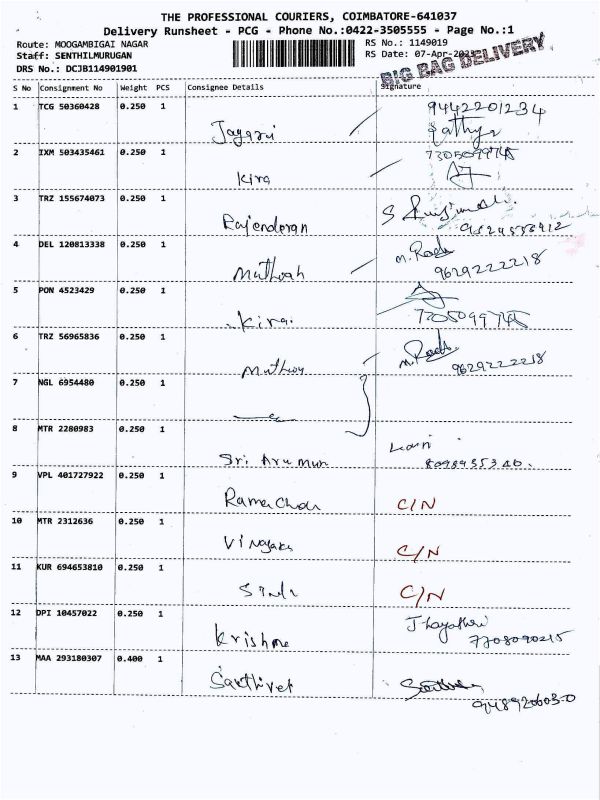 THE PROFESSIONAL COURIERS, COIMBATORE-641037
Delivery Runsheet - PCG - Phone No.:0422-3505555 - Page No.:1
Route: MOOGAMBIGAI NAGAR
RS No.: 1149019
Staff: SENTHILMURUGAN
RS Date: 07-Apr-2023
DRS No.: DCJB114901901
BIG BAG DELIVERY
S No Consignment No Weight PCS Consignee Details Signature
1 TCG 50360428 0.250 1
9442201234
Sathya
2 IXM 503435461 0.250 1
7305099745
Kira
3 TRZ 155674073 0.250 1
Rajenderan
4 DEL 120813338 0.250 1
m. Radh
Muthvah 9629222218
5 PON 4523429 0.250 1
Kirai 7305099745
6 TRZ 56965836 0.250 1
m. Radh
9629222218
7 NGL 6954480 0.250 1
8 MTR 2280983 0.250 1
Sri Arumun
9 VPL 401727922 0.250 1
Ramachan C/N
10 MTR 2312636 0.250 1
Vinayaka C/N
11 KUR 694653810 0.250 1
C/N
12 DPI 10457022 0.250 1
Krishna 7708090215
13 MAA 293180307 0.400 1
Sakthivel